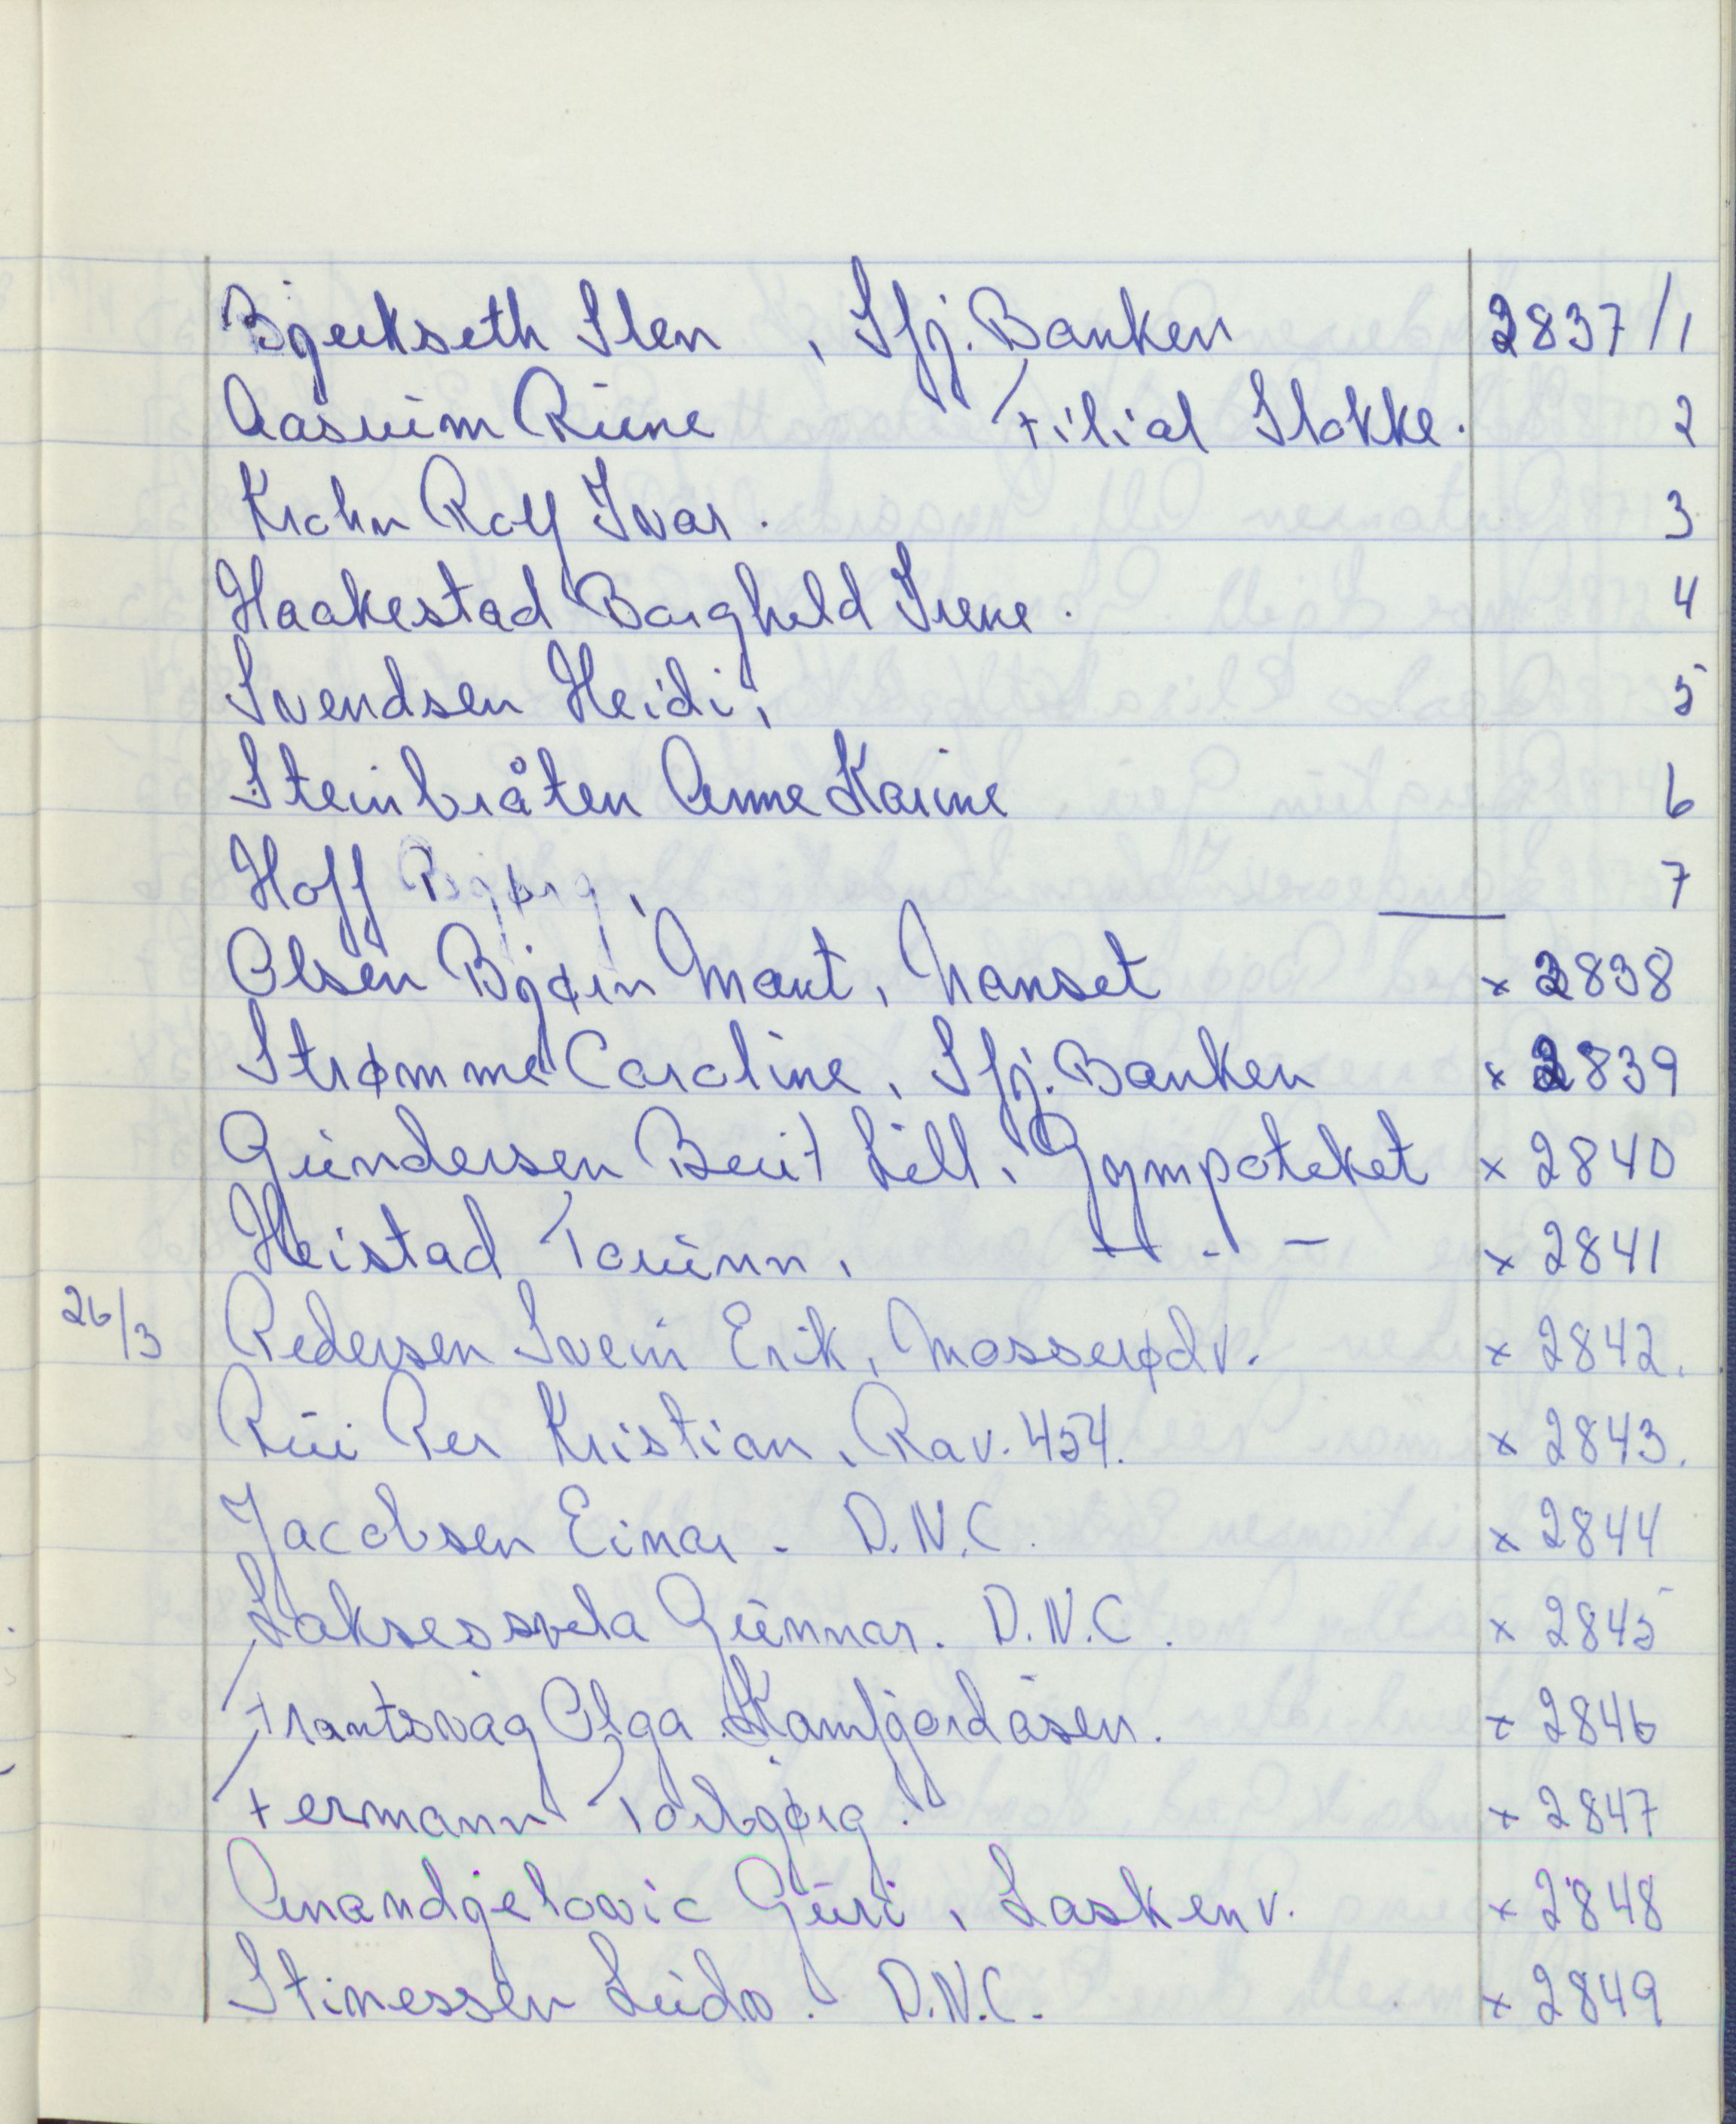 Bjerkseth Sten , Sfj. Banken 2837/1
Aasrum Rune Filial Stokke. 2
Krohn Rolf Ivar. 3
Haakestad Borghild Irene. 4
Svendsen Heidi, 5
Steinbråten Anne Karine 6
Hoff Bjørg, 7
Olsen Bjørn Marit, Nanset x 2838
Strømme Caroline, Sfj. Banken x 2839
Gundersen Berit Lill, Gympoteket x 2840
Heistad Torunn, - - - x 2841
26/3 Pedersen Svein Erik, Mosserødv. x 2842.
Rui Per Kristian, Rav. 454. x 2843.
Jacobsen Einar. D.N.C. x 2844
Laksesvela Gunnar. D.N.C. x 2845
Frantsvåg Olga Kamfjordåsen. x 2846
Fermann Torbjørg. x 2847
Anandjelovic Guri, Laskenv. x 2848
Stinessen Luidv. D.N.C. x 2849